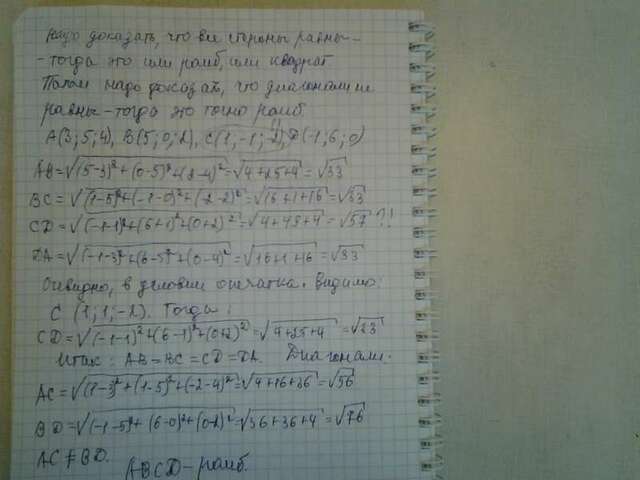 Надо доказать, что все стороны равны -
- тогда это или ромб, или квадрат
Потом надо доказать, что диагонали не
равны - тогда это точно ромб.
A(3; 5; 4), B(5; 0; 2), C(1; -1; -2), D(-1; 6; 0)
AB = √(5-3)² + (0-5)² + (2-4)² = √4+25+4 = √33
BC = √(1-5)² + (-1-0)² + (-2-2)² = √16+1+16 = √33
CD = √(-1-1)² + (6+1)² + (0+2)² = √4+49+4 = √57 ?!
DA = √(-1-3)² + (6-5)² + (0-4)² = √16+1+16 = √33
Очевидно, в условии опечатка. Видимо:
C (1; 1; -2). Тогда:
CD = √(-1-1)² + (6-1)² + (0+2)² = √4+25+4 = √33
Итак: AB = BC = CD = DA. Диагонали.
AC = √(1-3)² + (1-5)² + (-2-4)² = √4+16+36 = √56
BD = √(-1-5)² + (6-0)² + (0-2)² = √36+36+4 = √76
AC ≠ BD.
ABCD - ромб.